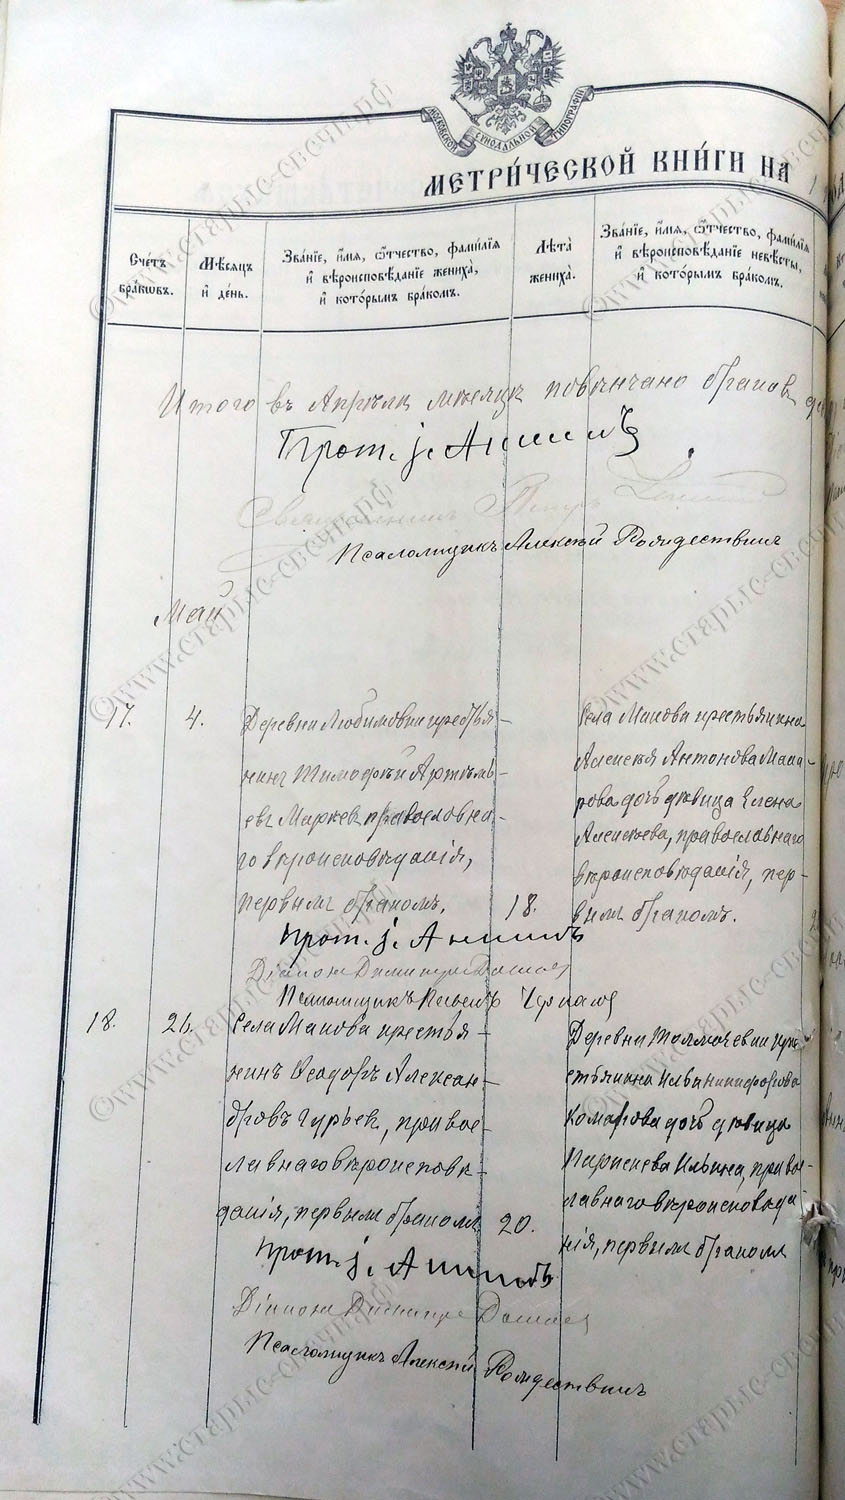 МОСКОВСКОЙ СѴНОДАЛЬНОЙ ТИПОГРАФІИ
МЕТРИ́ЧЕСКОЙ КНИ́ГИ НА 1
Сче́тъ бра́ковъ.
Мѣ́сяцъ и҆ де́нь.
Зва́нїе, и҆́мя, ѻ҆́тчество, фамѝлїя и҆ вѣроисповѣ́данїе жениха̀, и҆ кото́рымъ бра́комъ.
Лѣта̀ жениха̀.
Зва́нїе, и҆́мя, ѻ҆́тчество, фамѝлїя и҆ вѣроисповѣ́данїе невѣ́сты, и҆ кото́рымъ бра́комъ.
Итого въ Апрѣлѣ мѣсяцѣ повѣнчано браковъ
Прот. І.
Священникъ Петръ
Псаломщикъ Алексѣй Рождествинъ
Май
17.
4.
Деревни Любимовки крестья-
нинъ Тимофѣй Артемь-
евъ Маркев православна-
го вѣроисповѣданія,
первымъ бракомъ.
18.
Села Макова крестьянина
Алексѣя Антонова Мака-
рова дочь дѣвица Елена
Алексѣева, православнаго
вѣроисповѣданія, пер-
вымъ бракомъ.
Прот. І.
Діаконъ Димитрій
Псаломщикъ
18.
26.
Села Макова крестья-
нинъ Ѳеодоръ Алексан-
дровъ Гурьев, правос-
лавнаго вѣроисповѣ-
данія, первымъ бракомъ
20.
Деревни Толмачевки кре-
стьянина Ильи Никифорова
Комарова дочь дѣвица
Параскева Ильина, правос-
лавнаго вѣроисповѣда-
нія, первымъ бракомъ
Прот. І.
Діаконъ Димитрій
Псаломщикъ Алексѣй Рождествинъ
©www.старые-свечи.рф